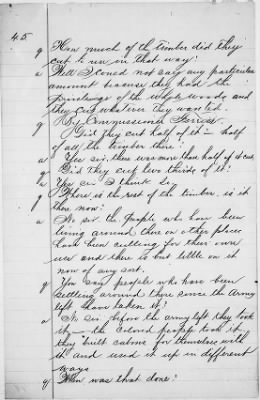 45
q How much of the timber did they
cut & use in that way?
a Well I could not say any particular
amount because they had the
privilege of the whole woods and
they cut whatever they wanted.
q By Commissioner Ferriss
Did they cut half of it – half
of all the timber there?
a Yes sir, there was more than half of it cut
q Did they cut two thirds of it?
a Yes sir I think so.
q Where is the rest of the timber, is it
there now?
a No sir the people who have been
living around there on other places
have been cutting for their own
use and there is but little on it
now of any sort.
q You say people who have been
settling around there since the Army
left have taken it?
a No sir before the army left they took
it – the colored people took it,
they built cabins for themselves with
it and used it up in different
ways
q When was that done?